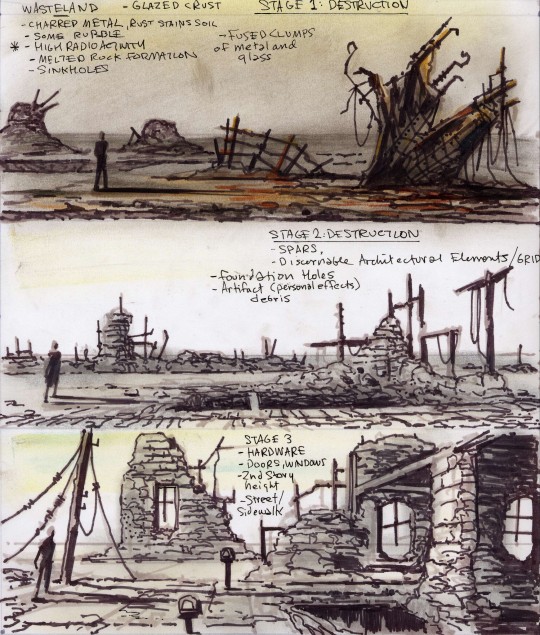 WASTELAND - GLAZED CRUST STAGE 1: DESTRUCTION
- CHARRED METAL, RUST STAINS SOIL
- SOME RUBBLE
* - HIGH RADIOACTIVITY
- MELTED ROCK FORMATION
- SINKHOLES
- FUSED CLUMPS
of metal and
glass
STAGE 2: DESTRUCTION
- SPARS,
- Discernable Architectural Elements/GRID
- Foundation Holes
- Artifact (personal effects)
debris
STAGE 3
- HARDWARE
- DOORS, WINDOWS
- 2nd Story
height
- Street/
Sidewalk